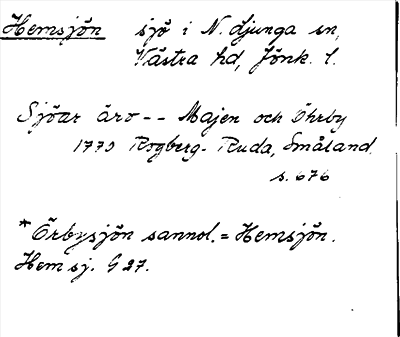 Hemsjön sjö i N. Ljunga sn,
Västra hd, Jönk. l.
Sjöar äro -- Majen och Öhrby
1770 Rogberg- Ruda, Småland.
s. 676
*Örbysjön sannol. = Hemsjön.
Hemsj. G 27.